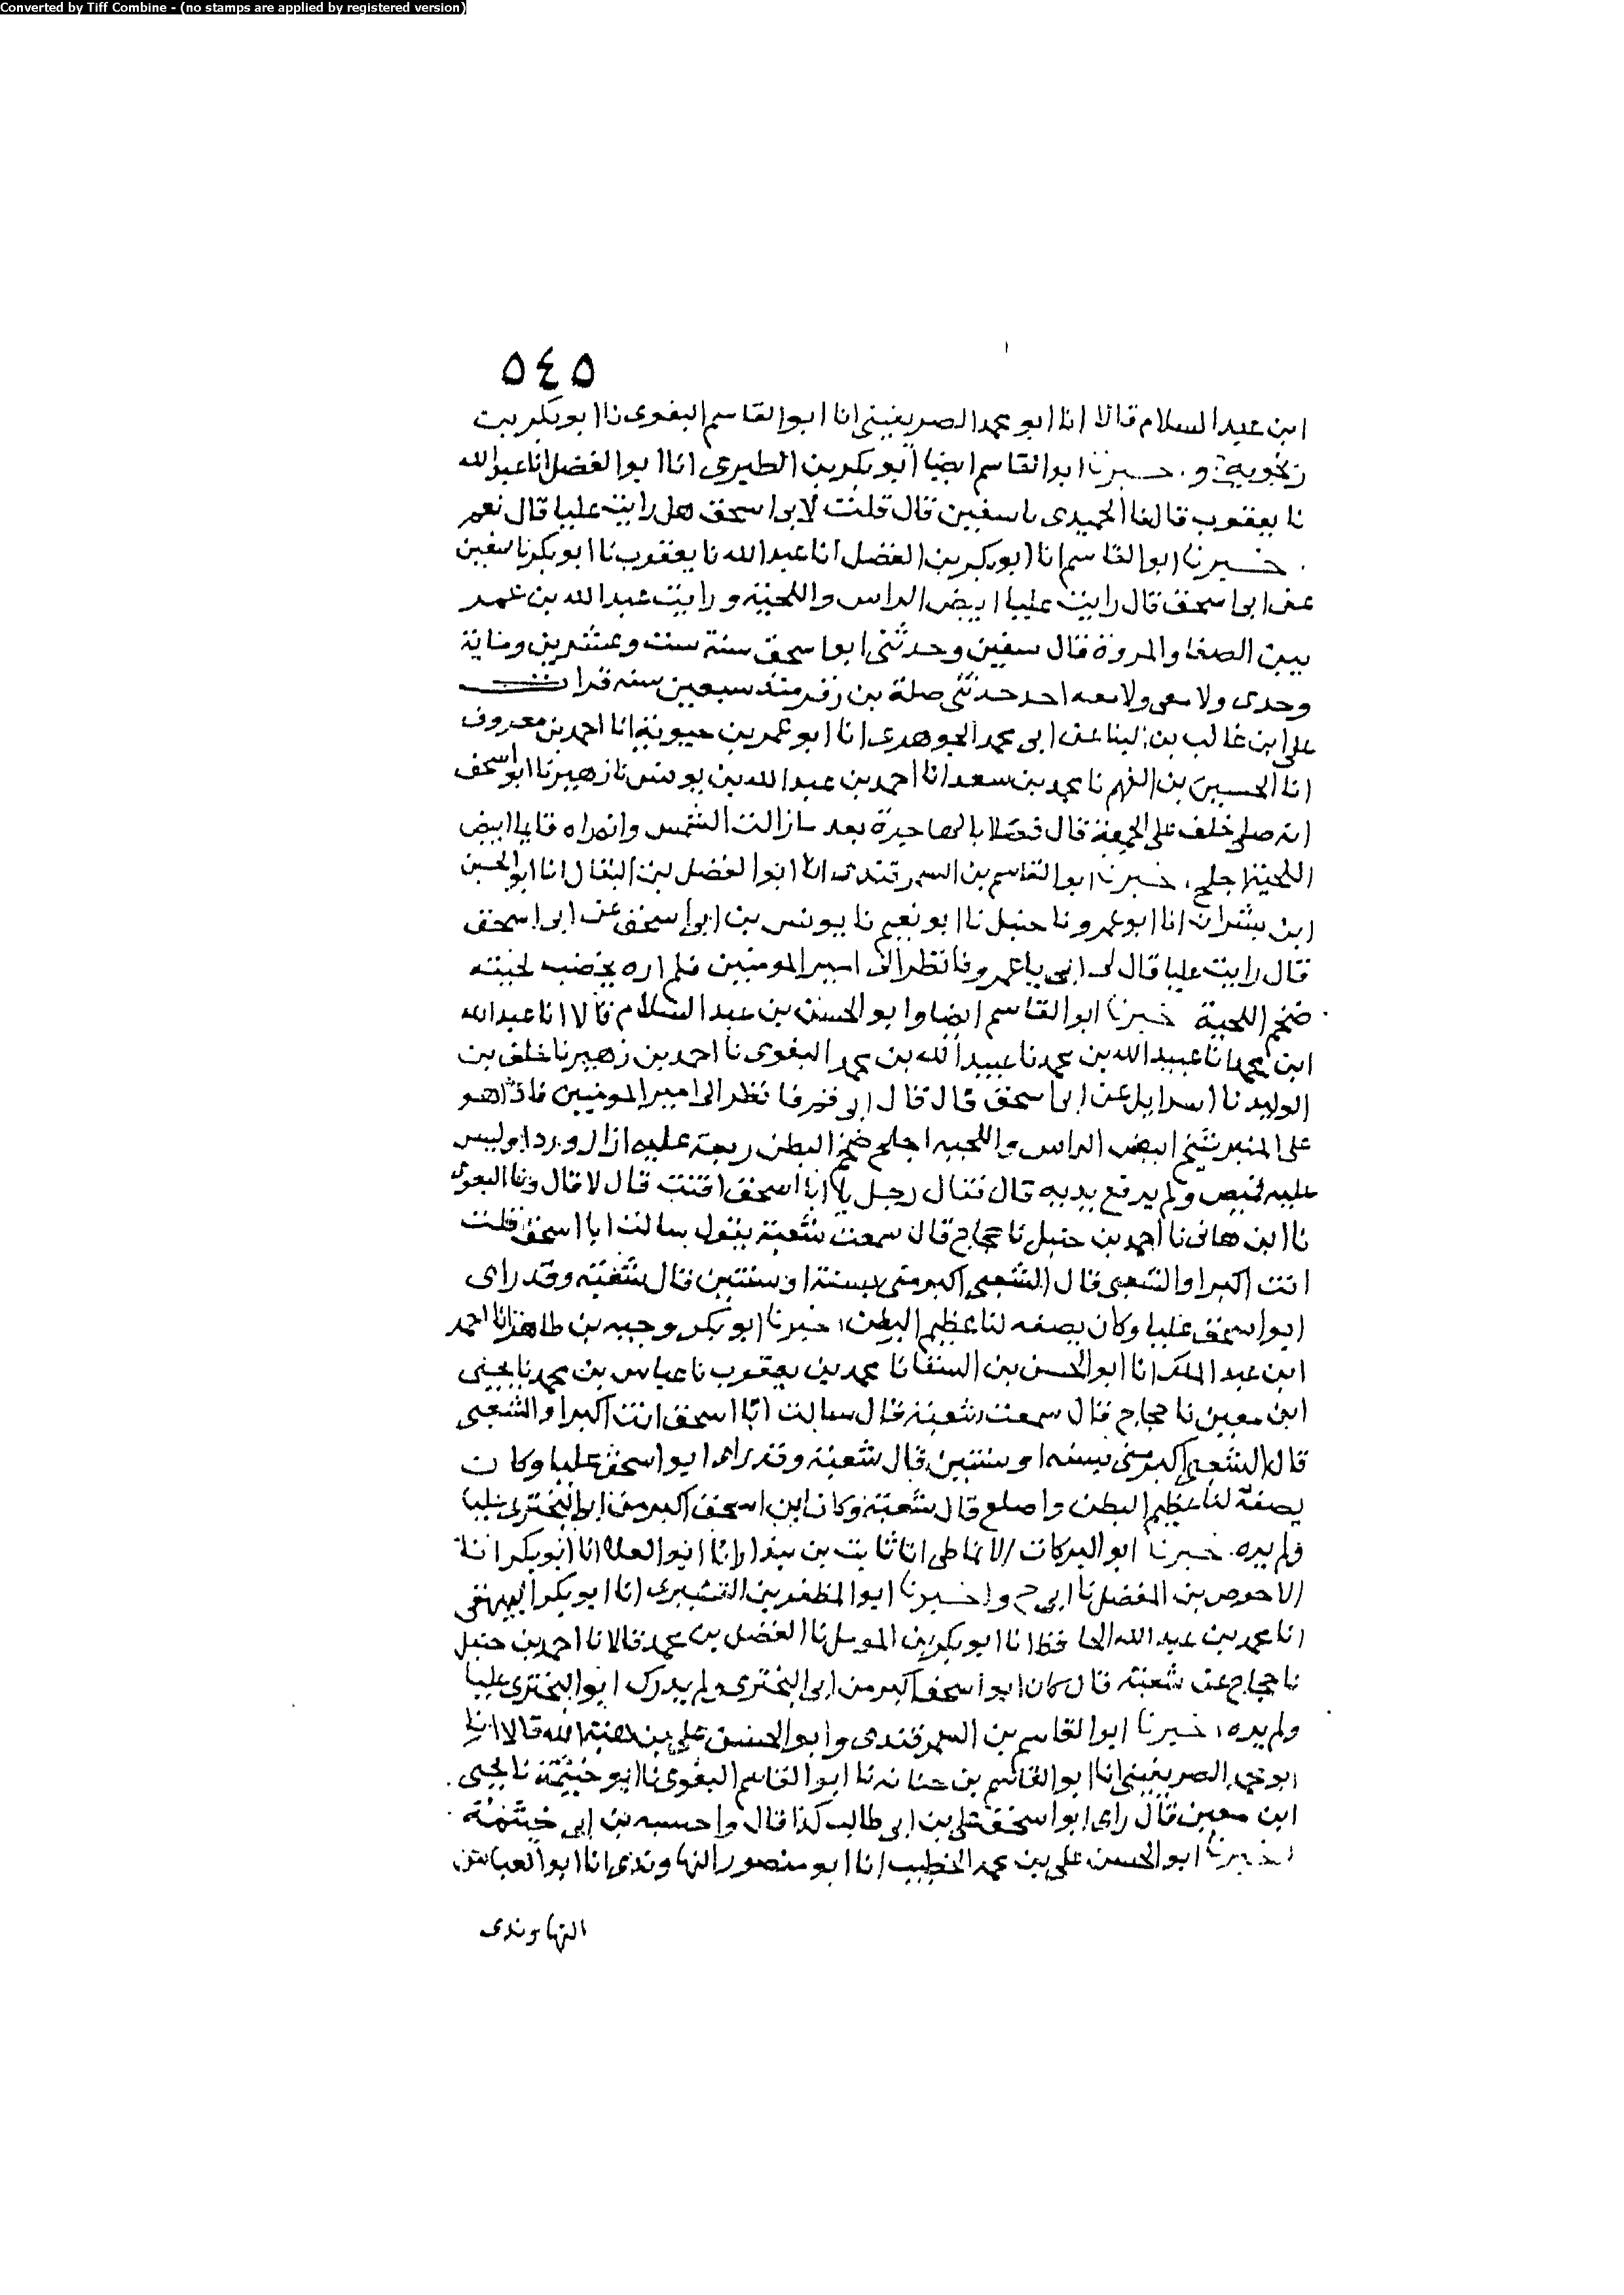 Converted by Tiff Combine - (no stamps are applied by registered version)
٥٤٥
ابن عبد السلام قالا انا ابو محمد الصريفيني انا ابو القاسم البغوى نا ابو بكر بن
زنجويه و خبرنا ابو القاسم ايضا ابو بكر بن الطبرى انا ابو الفضل انا عبد الله
نا يعقوب قال نا الحميدى نا سفين قال قلت لابى اسحق هل رايت عليا قال نعم
خبرنا ابو القاسم انا ابو بكر بن الفضل انا عبد الله نا يعقوب نا ابو بكر نا سفين
عن ابى اسحق قال رايت عليا ابيض الراس واللحية ورايت عبد الله بن عمر
بين الصفا والمروة قال سفين وحدثنى ابو اسحق سنة ست وعشرين وماية
وحدى ولا معى ولا معه احد حدثنى صلة بن زفر منذ سبعين سنه قرات
على ابن غالب بن البنا عن ابى محمد الجوهرى انا ابو عمر بن حيوية انا احمد بن معروف
انا الحسين بن الفهم نا محمد بن سعد انا احمد بن عبد الله بن يونس نا زهير نا ابو اسحق
انه صلى خلف على الجمعة قال فصلا بالهاجرة بعد ما زالت الشمس وانه راه قايما ابيض
اللحية اجلح خبرنا ابو القاسم بن السمرقندى انا ابو الفضل بن البقال انا ابو الحسين
ابن بشران انا ابو عمرو نا حنبل نا ابو نعيم نا يونس بن ابى اسحق عن ابى اسحق
قال رايت عليا قال لى ابى يا عمرو فانظر الى امير المومنين فلم اره يخضب لحيته
ضخم اللحية خبرنا ابو القاسم ايضا وابو الحسن بن عبد السلام قالا انا عبد الله
ابن محمد انا عبيد الله بن محمد نا عبد الله بن محمد البغوى نا احمد بن زهير نا خلف بن
الوليد نا اسرايل عن ابى اسحق قال قال ابى قم فانظر الى امير المومنين فاذا هو
على المنبر شيخ ابيض الراس واللحيه اجلح ضخم البطن ربعة عليه ازار وردا وليس
عليه قميص ولم يرفع يديه قال فقال رجل يا ابا اسحق اقنت قال لا قال ونا البغوى
نا ابن هانى نا احمد بن حنبل نا حجاج قال سمعت شعبة يقول سالت ابا اسحق قلت
انت اكبر او الشعبى قال الشعبى اكبر منى بسنة او سنتين قال شعبة وقد راى
ابو اسحق عليا وكان يصفه لنا عظيم البطن خبرنا ابو بكر وجيه بن طاهر انا احمد
ابن عبد الملك انا ابو الحسن بن السقا نا محمد بن يعقوب نا عباس بن محمد نا يحيى
ابن معين نا حجاج قال سمعت شعبة قال سالت ابا اسحق انت اكبر او الشعبى
قال الشعبى اكبر منى بسنه او سنتين قال شعبة وقد راى ابو اسحق عليا وكان
يصفه لنا عظيم البطن واصلع قال شعبة وكان ابن اسحق اكبر من ابو البخترى عليا
ولم يره خبرنا ابو البركات الانماطى انا ثابت بن بندار انا ابو العلا انا ابو بكر انا
الاحوص بن المفضل نا ابى ح واخبرنا ابو المظفر بن القشيرى انا ابو بكر البيهقى
انا محمد بن عبد الله الحافظ انا ابو بكر بن المومل نا الفضل بن محمد قالا نا احمد بن حنبل
نا حجاج عن شعبة قال كان ابو اسحق اكبر من ابى البخترى ولم يدرك ابو البخترى عليا
ولم يره خبرنا ابو القاسم بن السمرقندى وابو الحسن على بن هبة الله قالا انا
ابو محمد الصريفينى انا ابو القاسم بن حبابه نا ابو القاسم البغوى نا ابو خيثمة نا يحيى
ابن معين قال راى ابو اسحق على بن ابى طالب كذا قال واحسبه بن ابى خيثمة
اخبرنا ابو الحسن على بن محمد الخطيب انا ابو منصور النهاوندى انا ابو العباس
النهاوندى